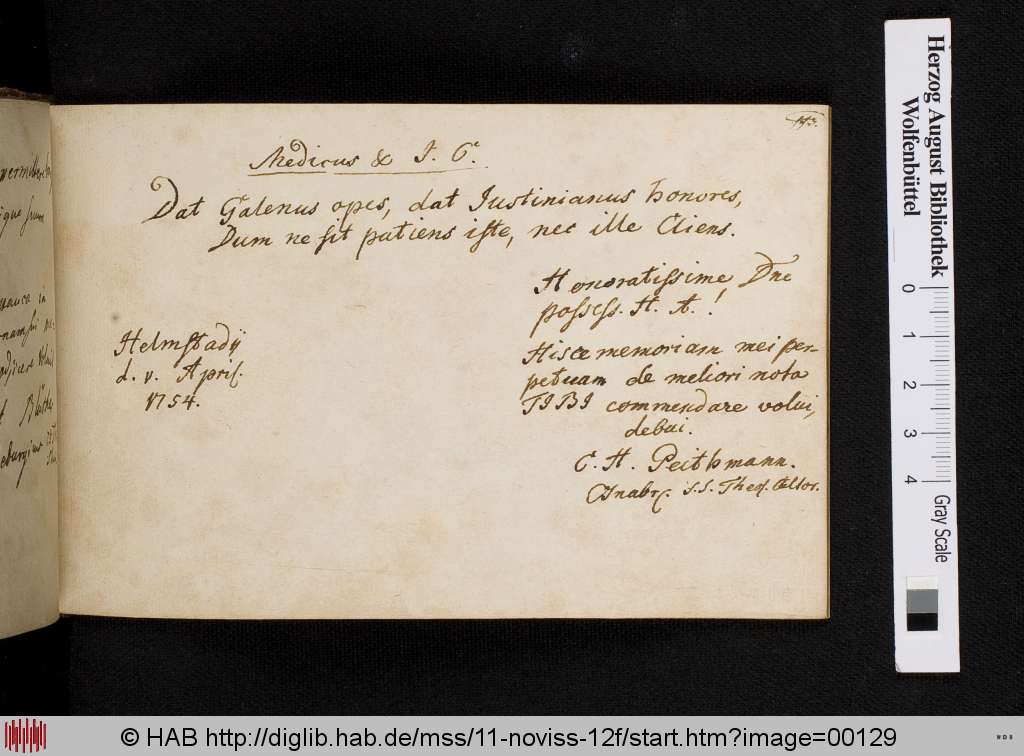 143.
Medicus & J. C.
Dat Galenus opes, dat Justinianus honores,
Dum ne sit patiens iste, nec ille Cliens.
Honoratissime Dne
possess. H. A.!
Hisce memoriam mei per-
petuam de meliori nota
TIBI commendare volui,
debui.
C. H. Peithmann.
Osnabr. S.S. Theol. Cultor.
Helmstadij
d. v. April.
1754.
Herzog August Bibliothek
Wolfenbüttel
0 1 2 3 4
Gray Scale
© HAB http://diglib.hab.de/mss/11-noviss-12f/start.htm?image=00129